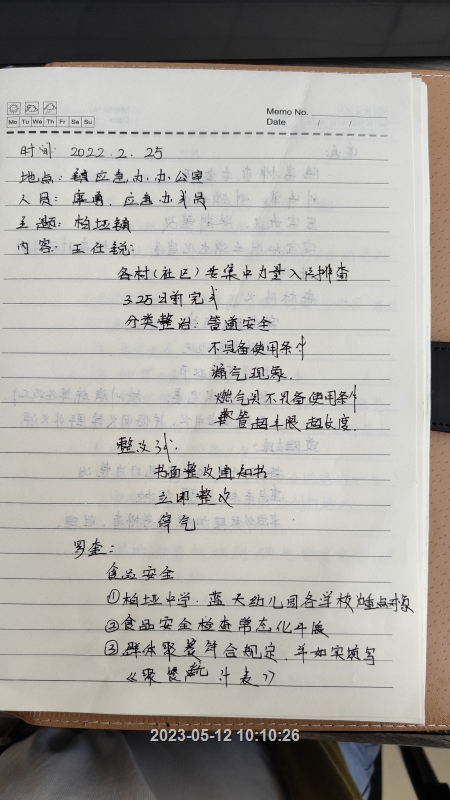 Mo Tu We Th Fr Sa Su
Memo No.
Date / /
时间: 2022.2.25
地点: 镇应急办办公室
人员: 应急办成员
主题: 柏垭镇
内容: 王仕锐:
各村(社区)要集中力量入户排查
3.25日前完成
分类整治: 管道安全
不具备使用条件
漏气现象.
燃气具不具备使用条件
软管超年限超长度.
整改
书面整改通知书
立即整改
停气
罗奎:
食品安全
①柏垭中学.蓝天幼儿园各学校为重点对象
②食品安全检查常态化开展
③群体聚餐符合规定,并如实填写
《聚餐统计表》
2023-05-12 10:10:26